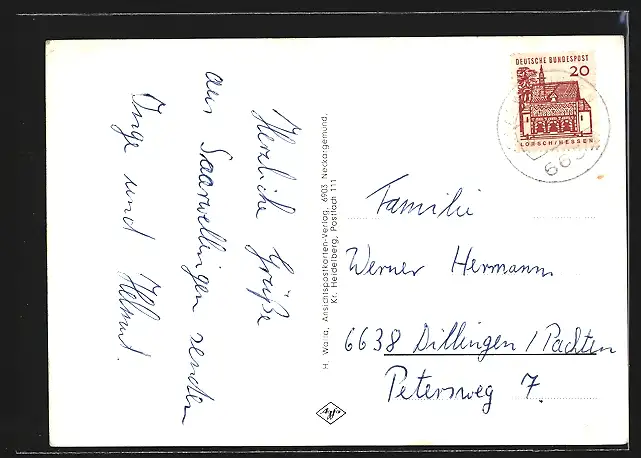 Herzliche Grüße
aus Saarwellingen senden
Inge und Helmut.
H. Walla, Ansichtspostkarten-Verlag, 6903 Neckargemünd,
Kr. Heidelberg, Postfach 111
DEUTSCHE BUNDESPOST
20
LORSCH/HESSEN
Familie
Werner Hermann
6638 Dillingen/Pachten
Petersweg 7.